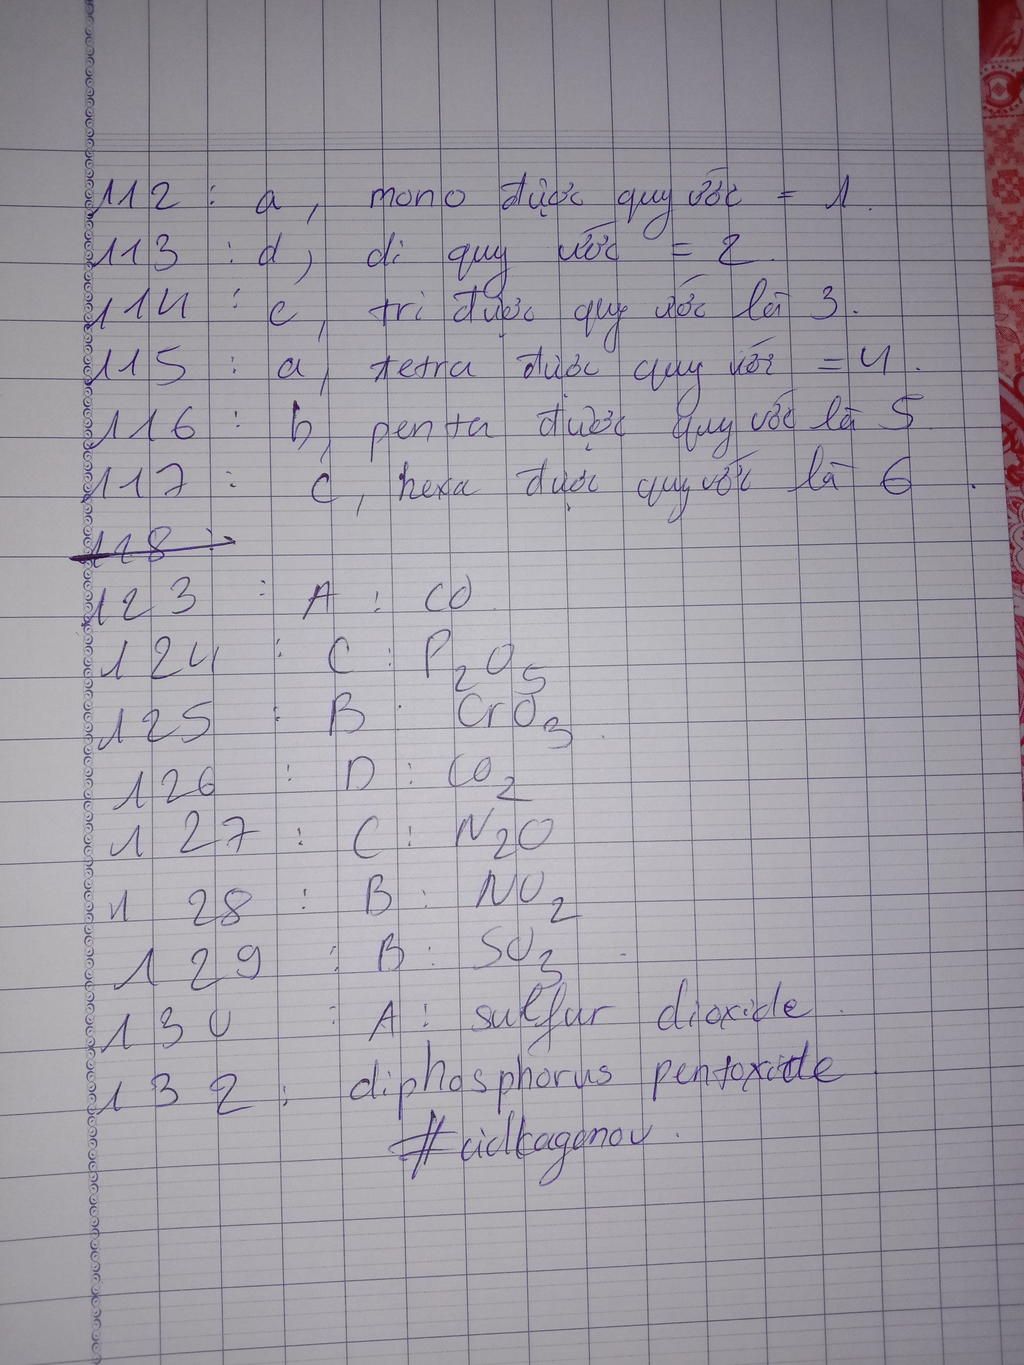 112 : a, mono được quy ước = 1.
113 : d, di quy ước = 2.
114 : c, tri được quy ước là 3.
115 : a, tetra được quy ước = 4.
116 : b, penta được quy ước là 5
117 : c, hexa được quy ước là 6.
128 :
123 : A : CO
124 : C : P2O5
125 : B : CrO3.
126 : D : CO2
127 : C : N2O
128 : B : NO2
129 : B : SO3.
130 : A : sulfur dioxide.
132 : diphosphorus pentoxide